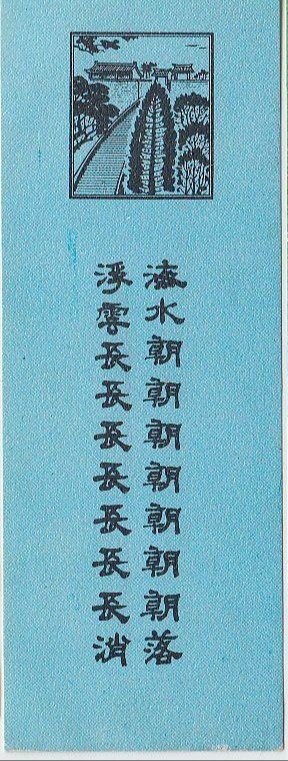 海水朝朝朝朝朝朝朝落
浮雲長長長長長長長消